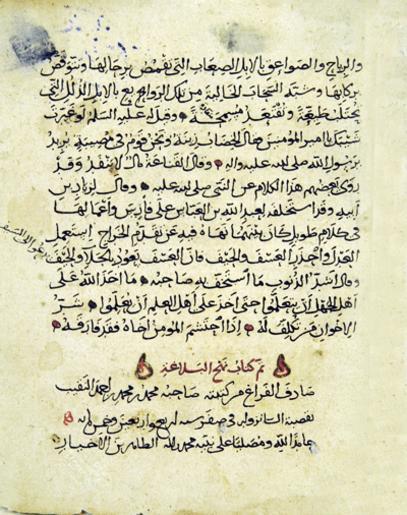 والرياح والصواعق بالابل الصعاب التي تقمص برحالها وتتوقص
بركبانها وشبه السحاب الخالية من تلك الروايع بالابل الذلل التي
تحتلب طيعة وتقتعد مسمحة وقيل له عليه السلم لو غيرت
شيبك يا امير المؤمنين فقال الخضاب زينة ونحن قوم في مصيبة يريد
برسول الله صلى الله عليه واله وقال القناعة مال لا ينفد وقد
روى بعضهم هذا الكلام عن النبي صلى الله عليه وقال لزياد بن
ابيه وقد استخلفه لعبد الله بن العباس على فارس واعمالها
في كلام طويل كان بينهما نهاه فيه عن تقدم الخراج استعمل
العدل واحذر العسف والحيف فان العسف يعود بالجلاء والحيف
يدعو الى السيف
وقال اشد الذنوب ما استخف به صاحبه ما اخذ الله على
اهل الجهل ان يتعلموا حتى اخذ على اهل العلم ان يعلموا شر
الاخوان من تكلف له اذا احتشم المؤمن اخاه فقد فارقه
تم كتاب نهج البلاغة
صادف الفراغ من كتبته صاحبه محمد بن محمد بن احمد النقيب
بقصبة في صفر سنة
حامدا لله ومصليا على نبيه محمد واله الطاهرين الاخيار